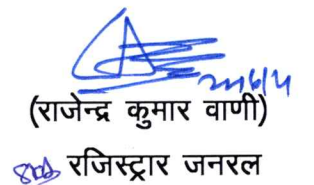 (राजेन्द्र कुमार वाणी)
रजिस्ट्रार जनरल